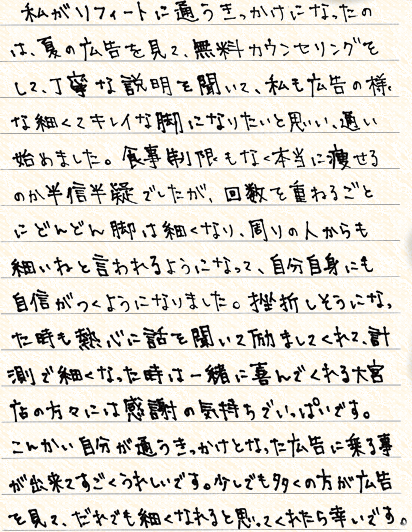 私がリフィートに通うきっかけになったの
は、夏の広告を見て、無料カウンセリングを
して、丁寧な説明を聞いて、私も広告の様
な細くてキレイな脚になりたいと思い、通い
始めました。食事制限もなく本当に痩せる
のか半信半疑でしたが、回数を重ねるごと
にどんどん脚は細くなり、周りの人からも
細いねと言われるようになって、自分自身にも
自信がつくようになりました。挫折しそうになっ
た時も熱心に話を聞いて励ましてくれて、計
測で細くなった時は一緒に喜んでくれる大宮
店の方々には感謝の気持ちでいっぱいです。
こんかい自分が通うきっかけとなった広告に乗る事
が出来てすごくうれしいです。少しでも多くの方が広告
を見て、だれでも細くなれると思ってくれたら幸いです。